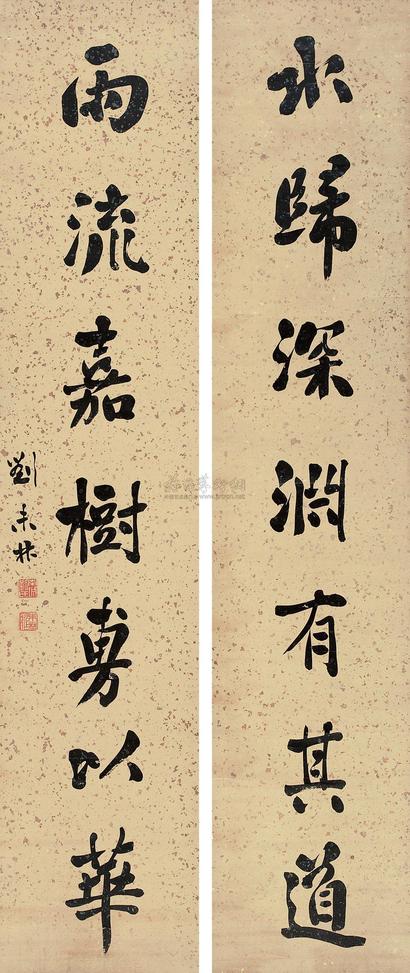 水歸深淵有其道
雨流嘉樹旉以華
劉未林